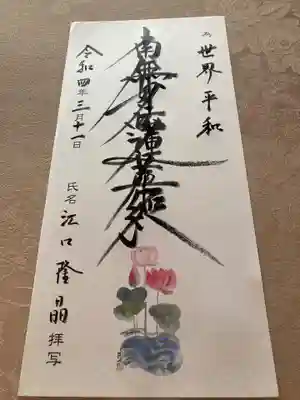 世界平和
南無妙法蓮華経
令和四年三月十一日
氏名 江口隆晶 拝写